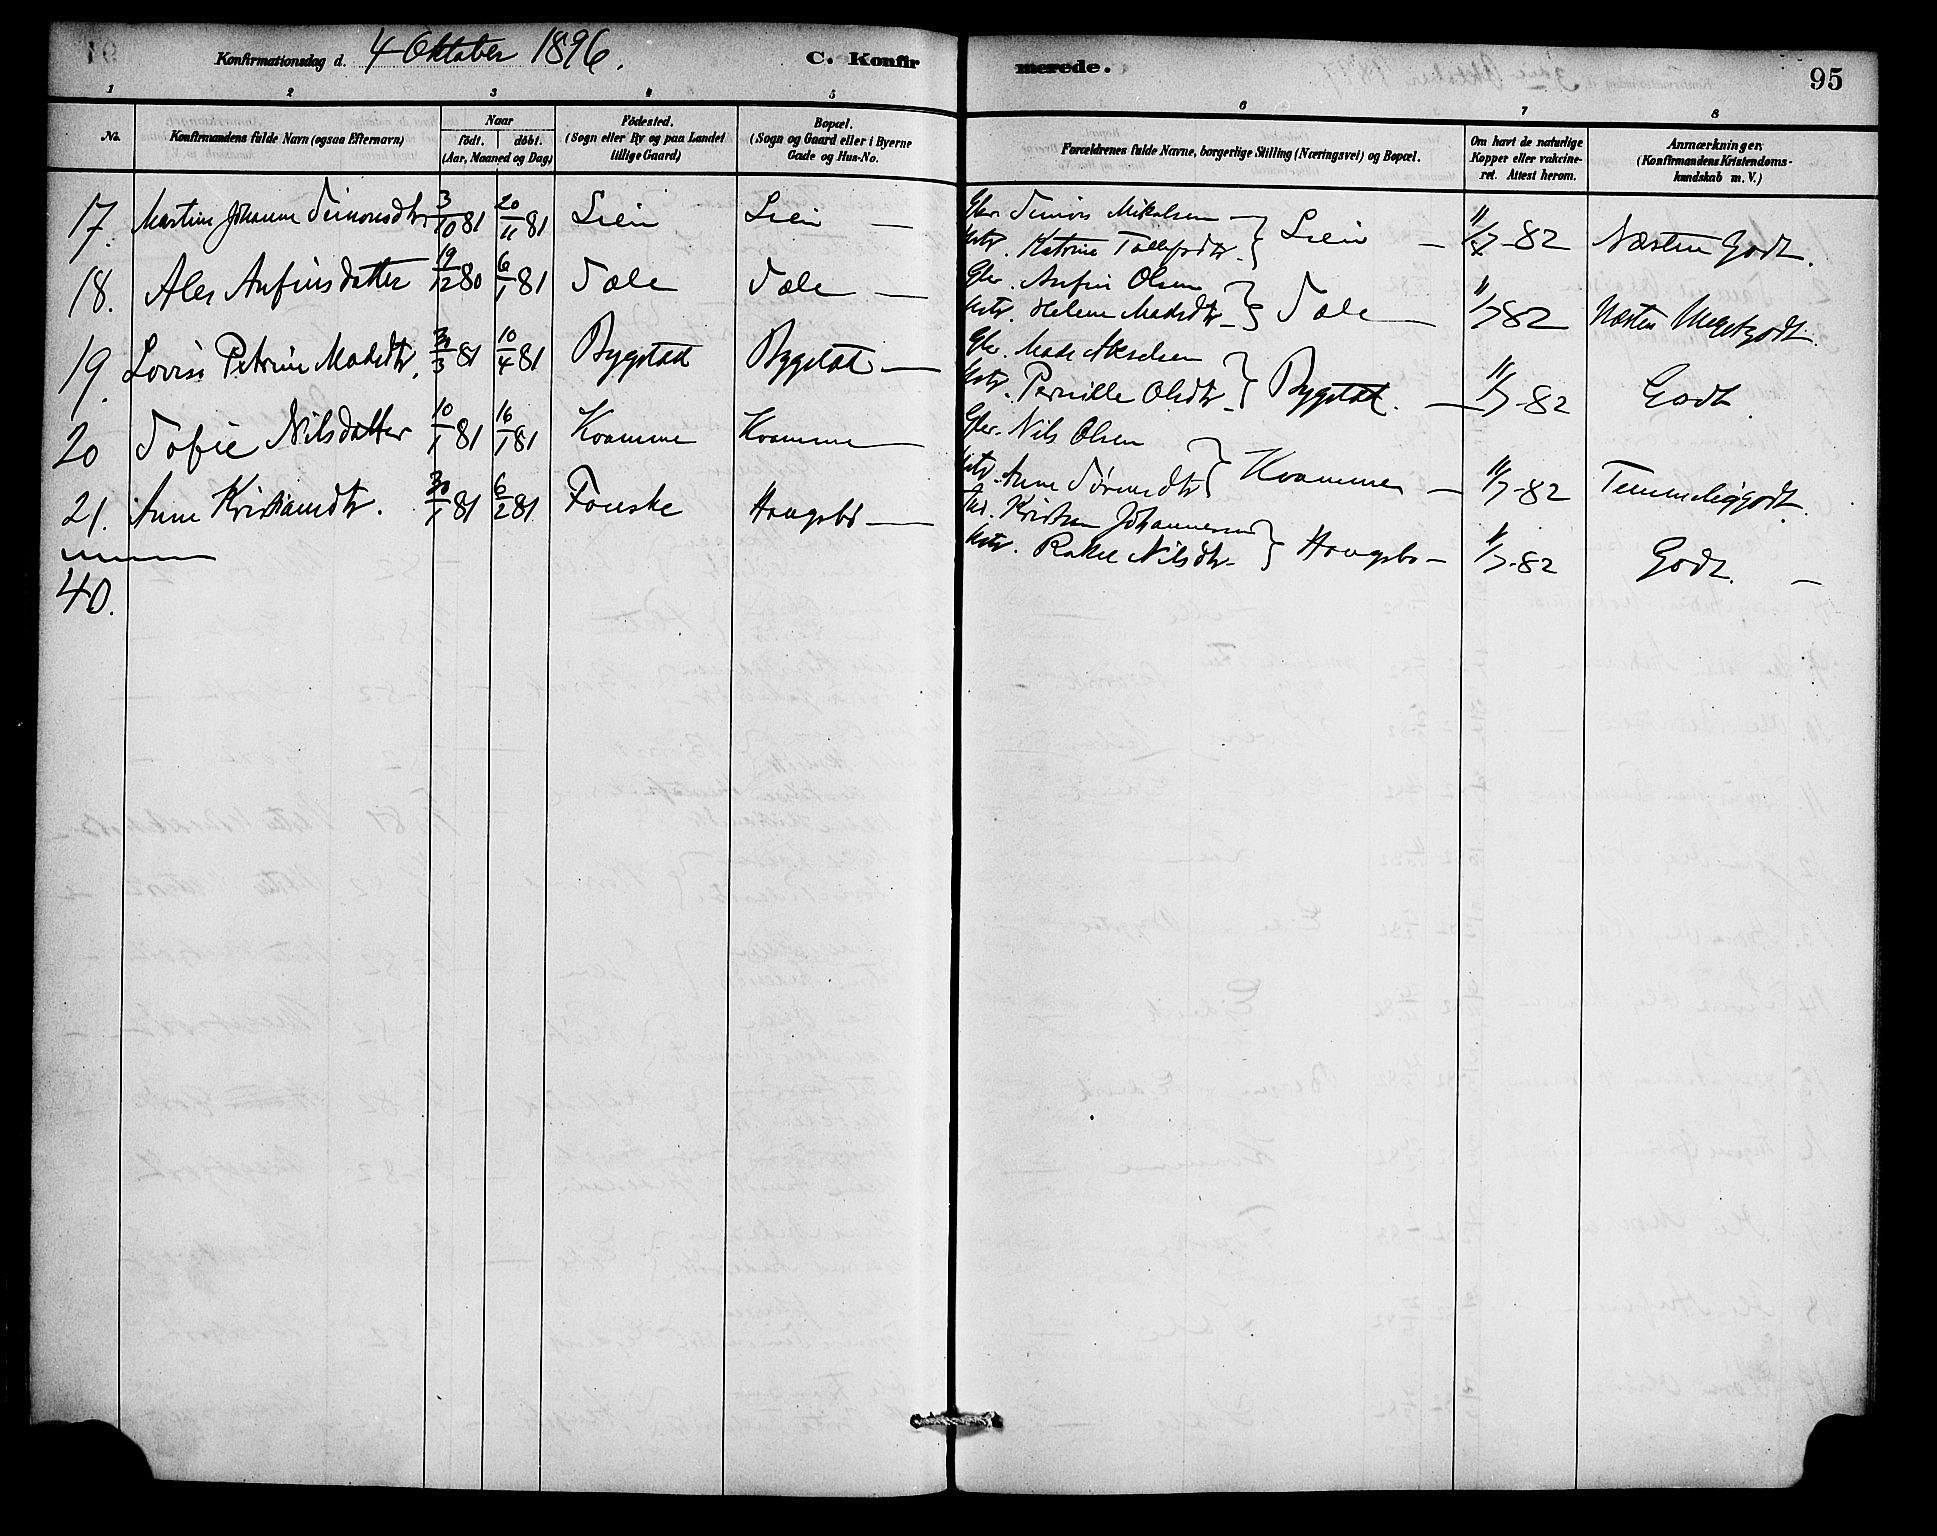 Konfirmationsdag d. 4 Oktober 1896.
C. Konfirmerede.
95
1 2 3 4 5 6 7 8
No.
Konfirmandens fulde Navn (ogsaa Efternavn)
Naar
födt. döbt.
(Aar, Maaned og Dag)
Födested.
(Sogn eller By og paa Landet
tillige Gaard)
Bopæl.
(Sogn og Gaard eller i Byerne
Gade og Hus-No.
Forældrenes fulde Navne, borgerlige Stilling (Næringsvei) og Bopæl.
Om havt de naturlige
Kopper eller vakcine-
ret. Attest herom.
Anmærkninger.
(Konfirmandens Kristendoms-
kundskab m. V.)
17. Martine Johanne Simonsdtr 3/10 81 20/11 81 Lien Lien — Gbr. Simon Mikalsen —
Hstr. Katrine Tollefsdtr. } Lien — 82 Næsten Godt.
18. Ales Anfinsdatter 19/12 80 6/1 81 Sæle Sæle — Gbr. Anfin Olsen
Hstr. Helene Madsdtr — } Sæle — 11/7 82 Næsten Megetgodt.
19. Lovise Petrine Madsdtr. 3/81 10/4 81 Bygstad Bygstad — Gbr. Mads Akselsen
Hstr. Pernille Olsdtr — } Bygstad. — 11/7-82 Godt.
20 Sofie Nilsdatter 10/1 81 16/1 81 Kvamme Kvamme — Gbr. Nils Olsen
Hstr. Anne Sörensdtr } Kvamme — 11/7-82 Temmeliggodt.
21. Anne Kristiansdtr. 30/1 81 6/2 81 Fonske Haugsbö — Kristen Johannessen
Hstr. Rakel Nilsdtr — } Haugsbö — 11/7-82 Godt. —
40.